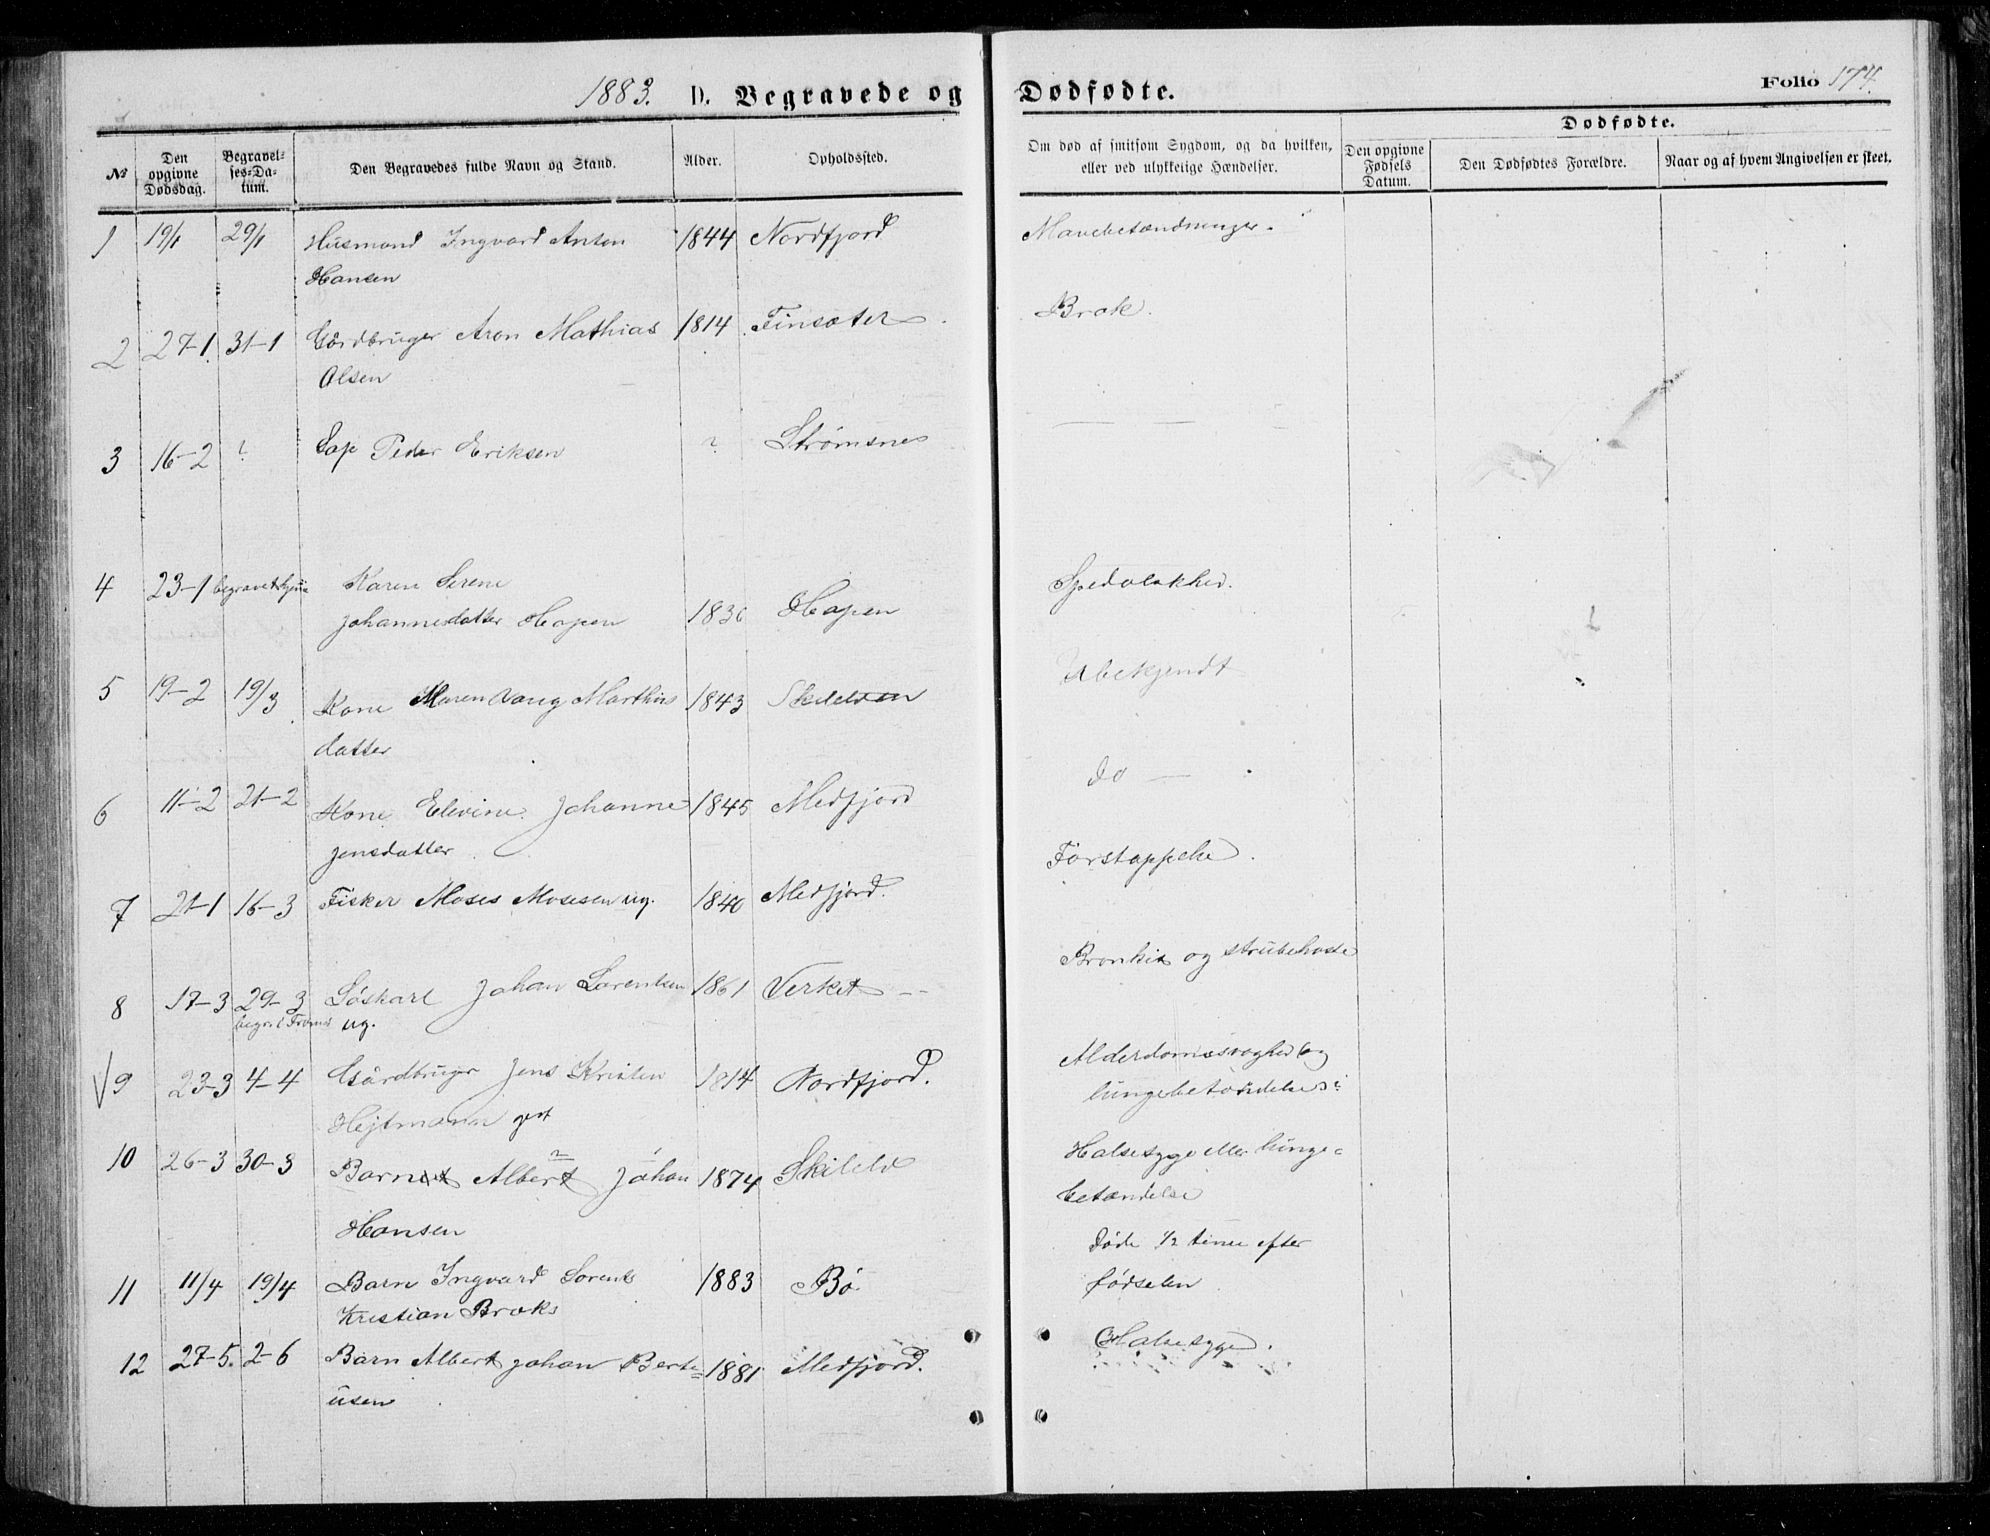 1883. D. Begravede og Dødfødte. Folio 174.
№ Den opgivne Dødsdag. Begravelses-Datum. Den Begravedes fulde Navn og Stand. Alder. Opholdssted. Om død af smitsom Sygdom, og da hvilken, eller ved ulykkelige Hændelser. Dødfødte.
Den opgivne Fødsels Datum. Den Dødfødtes Forældre. Naar og af hvem Angivelsen er skeet.
1 19/1 29/1 Husmand Ingvard Anton 1844 Nordfjord Mavebetændninger.
Hansen
2 27-1 31-1 Gårdbruger Aron Mathias 1814 Finsæter Brok.
Olsen
3 16-2 ? Lap Peder Eriksen ? Strømsnes — — —
4 23-1 begravet hjem Karen Serene Spedalskhed.
Johannesdatter Hopen 1836 Hopen
5 19-2 19/3 Kone Maren Vang Marthins 1843 Skileten Ubekjendt
datter
6 11-2 21-2 Kone Elevine Johanne 1845 Medfjord do —
Jensdatter
7 21-1 16-3 Fisker Moses Mosesen ug. 1840 Medfjord. Forstoppelse.
8 17-3 29-3 Löskarl Johan Lorentsen 1861 Verket — Bronkit og strubehoste
ug.
9 23-3 4-4 Gårdbruger Jens Kristen 1814 Nordfjord. Alderdomssvaghed og
Hejtmann gert lungebetændelse
10 26-3 30-3 Barnet Albert Johan 1874 Skileld Halsesyge eller lunge-
Hansen betændelse
11 11/4 19/4 Barn Ingvard Lorents 1883 Bö Døde 1/2 time efter
Kristian Broks fødselen
12 27-5. 2-6 Barn Albert Johan Berte= 1881 Medfjord. Halsesyge.
usen